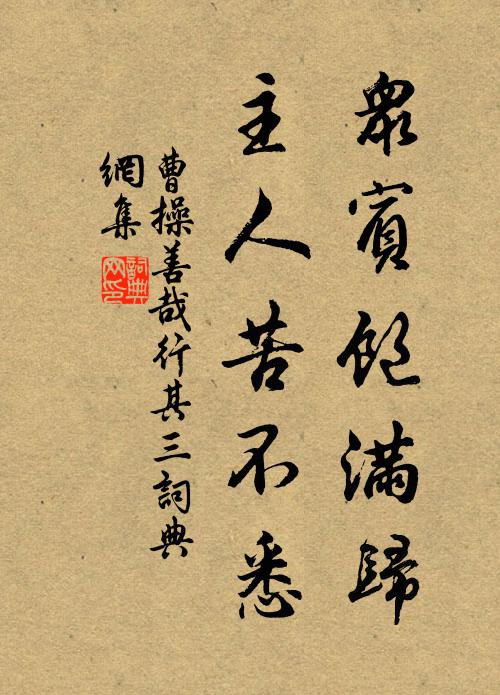 眾賓飽滿歸
主人苦不悉
曹操善哉行其三詞典
網集
詞典網印